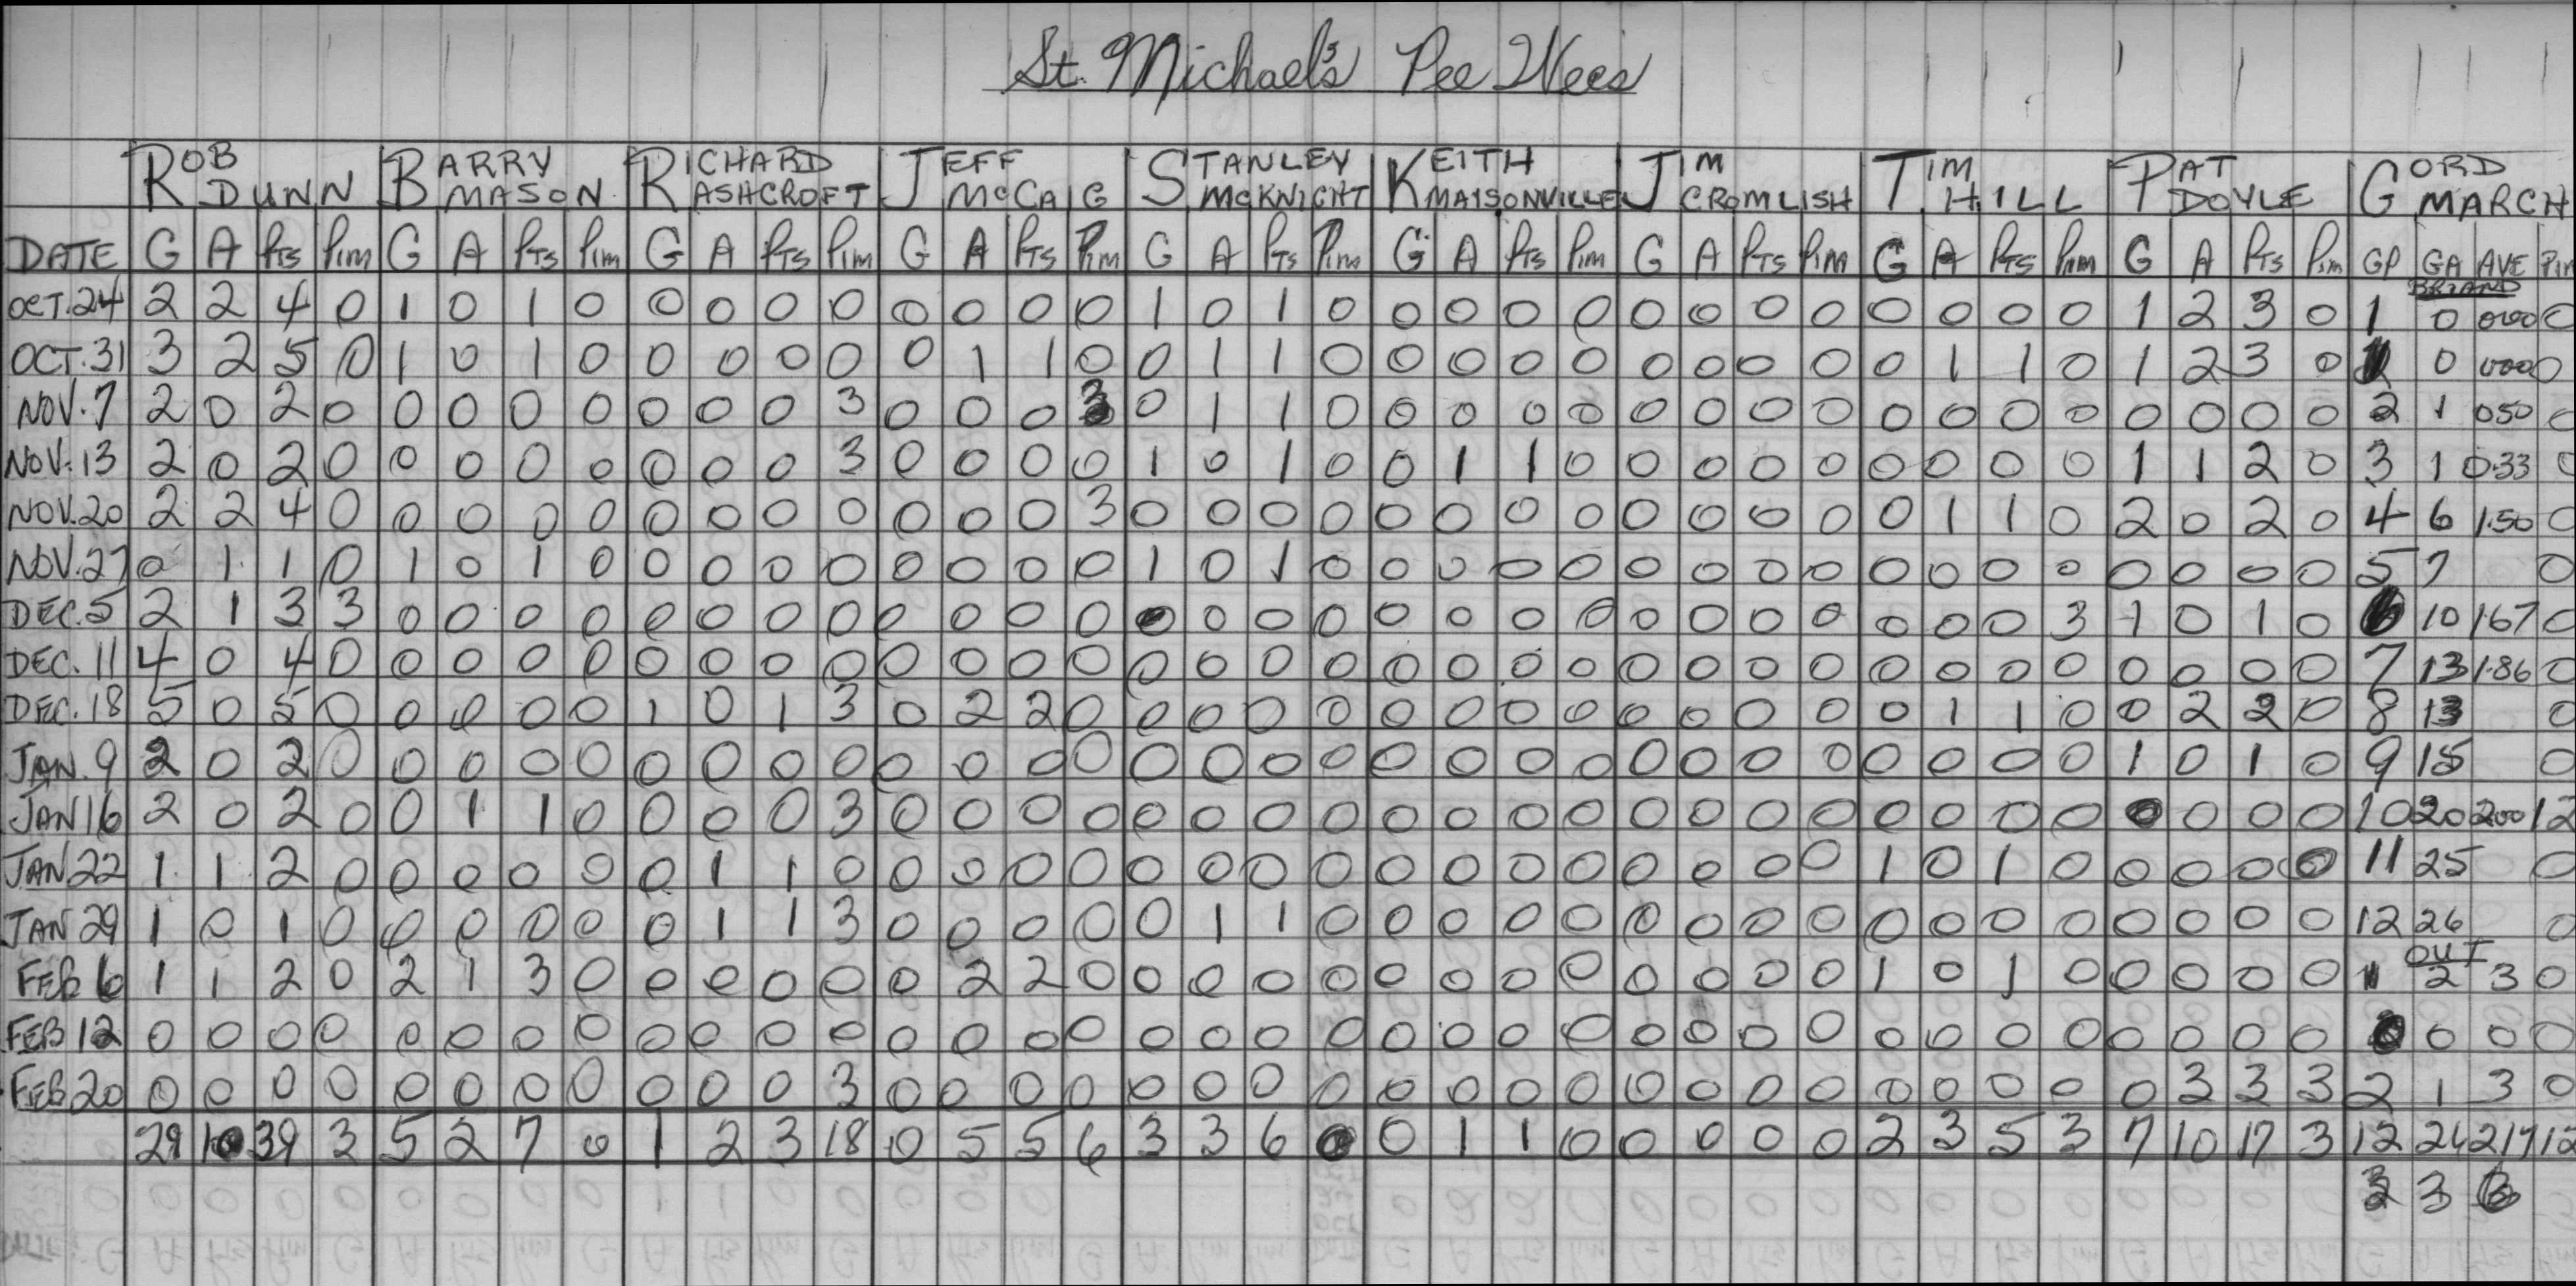 St. Michael's Pee Wees
ROB DUNN BARRY MASON RICHARD ASHCROFT JEFF McCAIG STANLEY McKNIGHT KEITH MAISONVILLE JIM CROMLISH TIM HILL PAT DOYLE GORD MARCH
DATE G A PTS PIM G A PTS PIM G A PTS PIM G A PTS PIM G A PTS PIM G A PTS PIM G A PTS PIM G A PTS PIM G A PTS PIM GP GA AVE PIM
BRIAND
OCT. 24 2 2 4 0 1 0 1 0 0 0 0 0 0 0 0 0 1 0 1 0 0 0 0 0 0 0 0 0 0 0 0 0 1 2 3 0 1 0 0.00 0
OCT. 31 3 2 5 0 1 0 1 0 0 0 0 0 0 1 1 0 0 1 1 0 0 0 0 0 0 0 0 0 0 1 1 0 1 2 3 0 0 0.00 0
NOV. 7 2 0 2 0 0 0 0 0 0 0 0 3 0 0 0 3 0 1 1 0 0 0 0 0 0 0 0 0 0 0 0 0 0 0 0 0 2 1 050 0
NOV. 13 2 0 2 0 0 0 0 0 0 0 0 3 0 0 0 0 1 0 1 0 0 1 1 0 0 0 0 0 0 0 0 0 1 1 2 0 3 1 0.33 0
NOV. 20 2 2 4 0 0 0 0 0 0 0 0 0 0 0 0 3 0 0 0 0 0 0 0 0 0 0 0 0 0 1 1 0 2 0 2 0 4 6 1.50 0
NOV. 27 0 1 1 0 1 0 1 0 0 0 0 0 0 0 0 0 1 0 1 0 0 0 0 0 0 0 0 0 0 0 0 0 0 0 0 0 5 7 0
DEC. 5 2 1 3 3 0 0 0 0 0 0 0 0 0 0 0 0 0 0 0 0 0 0 0 0 0 0 0 0 0 0 0 3 1 0 1 0 6 10 1.67 0
DEC. 11 4 0 4 0 0 0 0 0 0 0 0 0 0 0 0 0 0 0 0 0 0 0 0 0 0 0 0 0 0 0 0 0 0 0 0 0 7 13 1.86 0
DEC. 18 5 0 5 0 0 0 0 0 1 0 1 3 0 2 2 0 0 0 0 0 0 0 0 0 0 0 0 0 0 1 1 0 0 2 2 0 8 13 0
JAN. 9 2 0 2 0 0 0 0 0 0 0 0 0 0 0 0 0 0 0 0 0 0 0 0 0 0 0 0 0 0 0 0 0 1 0 1 0 9 15 0
JAN 16 2 0 2 0 0 1 1 0 0 0 0 3 0 0 0 0 0 0 0 0 0 0 0 0 0 0 0 0 0 0 0 0 0 0 0 0 10 20 200 12
JAN 22 1 1 2 0 0 0 0 0 0 1 1 0 0 0 0 0 0 0 0 0 0 0 0 0 0 0 0 0 1 0 1 0 0 0 0 0 11 25 0
JAN 29 1 0 1 0 0 0 0 0 0 1 1 3 0 0 0 0 0 1 1 0 0 0 0 0 0 0 0 0 0 0 0 0 0 0 0 0 12 26 0
OUT
FEB 6 1 1 2 0 2 1 3 0 0 0 0 0 0 2 2 0 0 0 0 0 0 0 0 0 0 0 0 0 1 0 1 0 0 0 0 0 1 2 3 0
FEB 12 0 0 0 0 0 0 0 0 0 0 0 0 0 0 0 0 0 0 0 0 0 0 0 0 0 0 0 0 0 0 0 0 0 0 0 0 0 0 0
FEB 20 0 0 0 0 0 0 0 0 0 0 0 3 0 0 0 0 0 0 0 0 0 0 0 0 0 0 0 0 0 0 0 0 0 3 3 3 2 1 3 0
29 10 39 3 5 2 7 0 1 2 3 18 0 5 5 6 3 3 6 0 0 1 1 0 0 0 0 0 2 3 5 3 7 10 17 3 12 26 217 12
3 3